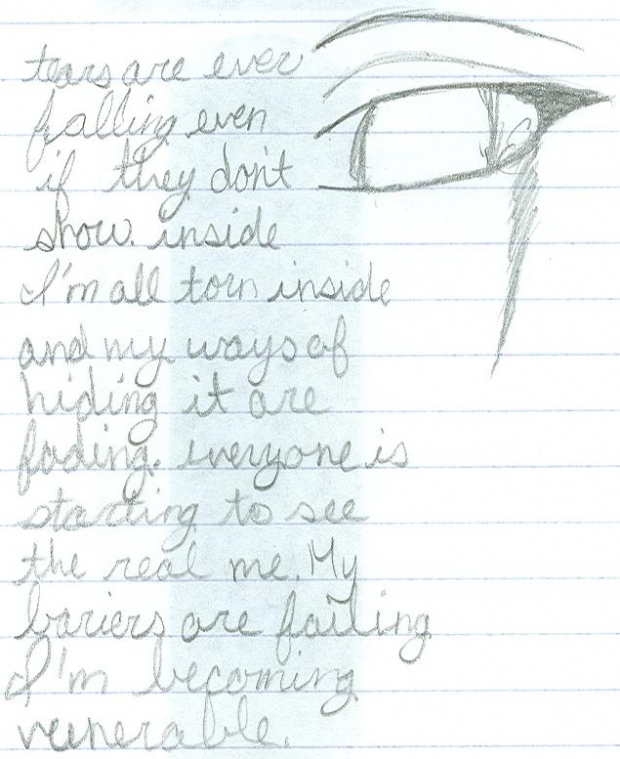 tears are ever
falling even
if they don't
show. inside
I'm all torn inside
and my ways of
hiding it are
fading. everyone is
starting to see
the real me. My
bariers are failing
I'm becoming
vunerable.